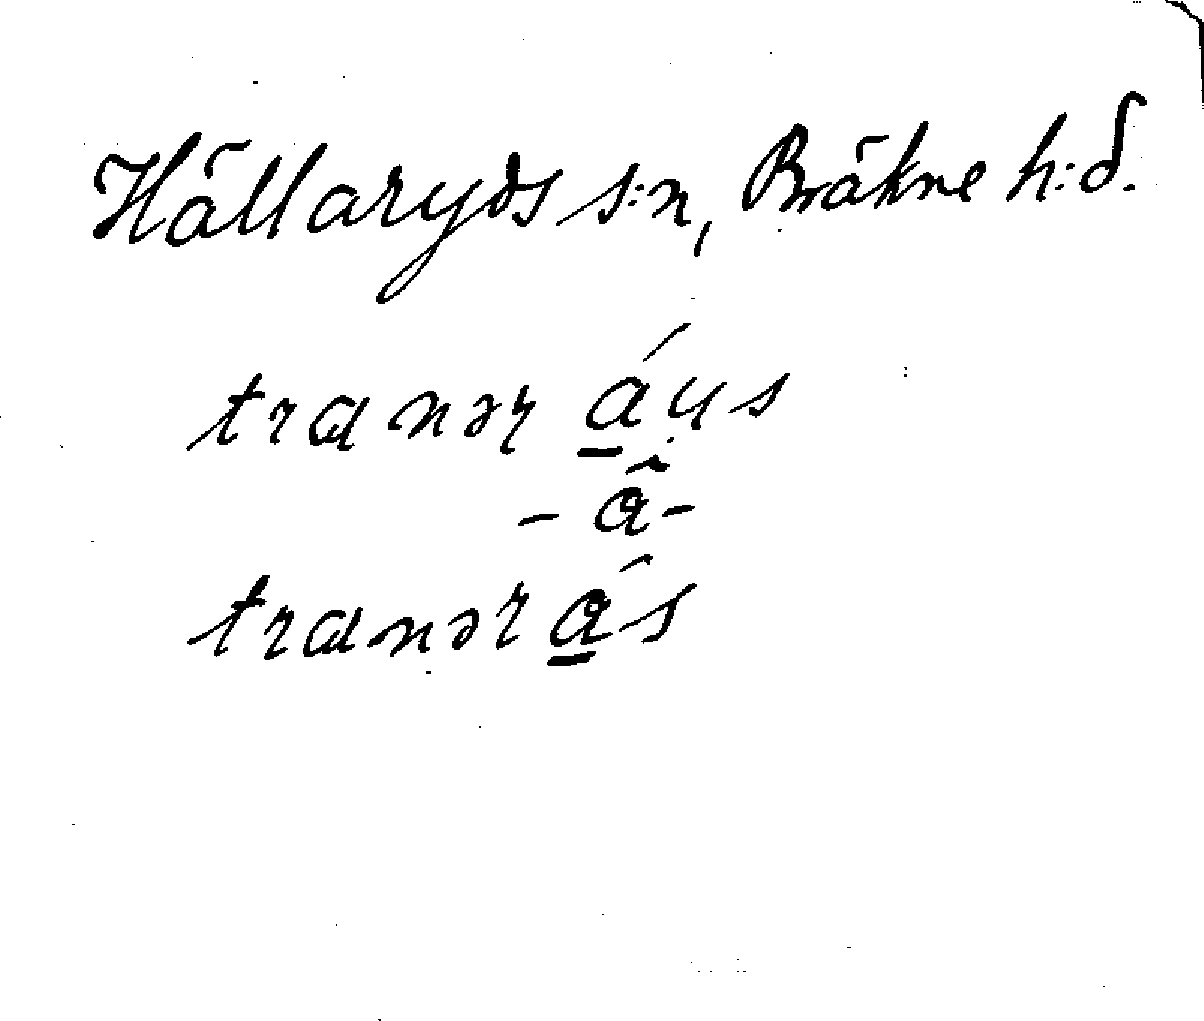 Hällaryds s:n, Bräkne h:d.
tranər á̱u̯s
- â -
tranərá̱s